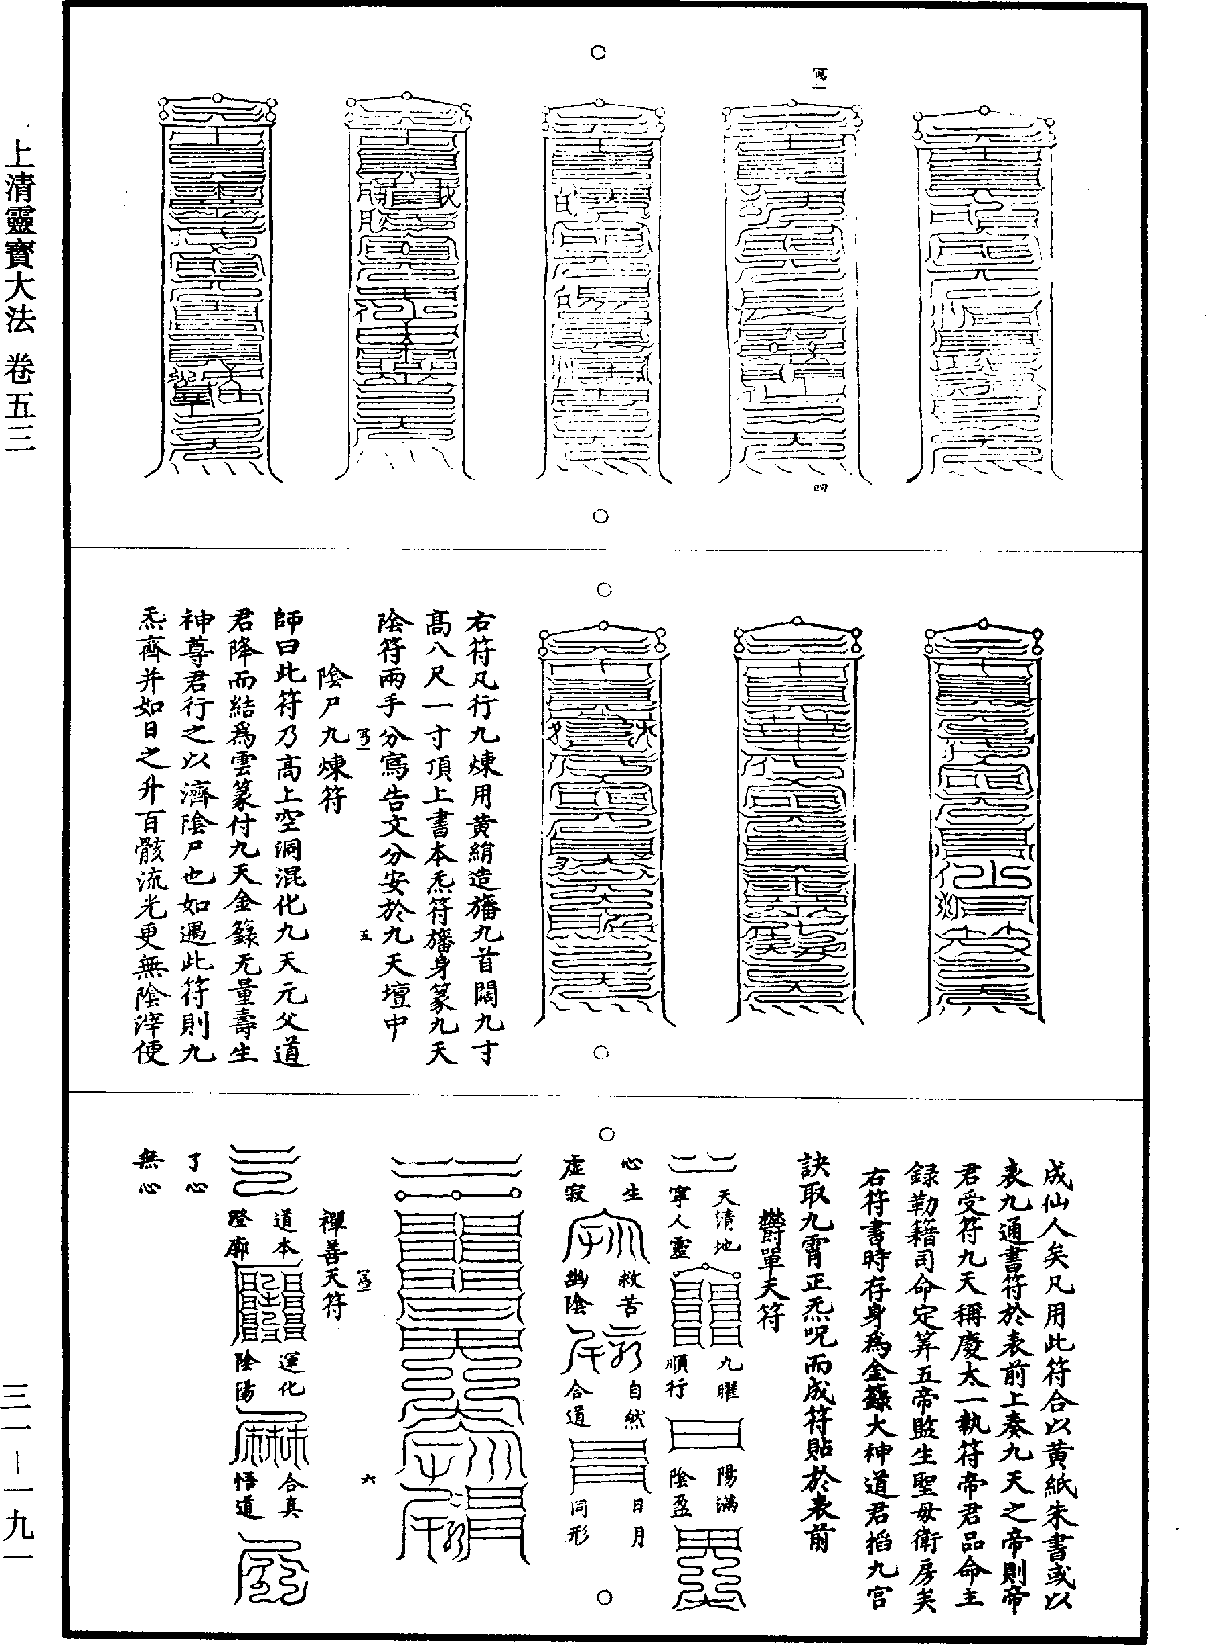 上清靈寶大法 卷五三
三一-一九一
四
右符凡行九煉用黄絹造旛九首闊九寸
高八尺一寸頂上書本炁符旛身篆九天
陰符兩手分寫告文分安於九天壇中
五
陰尸九煉符
師曰此符乃高上空洞混化九天元父道
君降而結爲雲篆付九天金籙无量壽生
神尊君行之以濟陰尸也如遇此符則九
炁齊并如日之升百骸流光更無陰滓便
成仙人矣凡用此符合以黄紙朱書或以
表九通書符於表前上奏九天之帝則帝
君受符九天稱慶太一執符帝君品命主
録勒籍司命定筭五帝監生聖母衛房矣
右符書時存身爲金籙大神道君掐九宫
訣取九霄正炁呪而成符貼於表前
鬱單天符
天清地
寧人靈
九曜
順行
陽滿
陰盈
心生
虚寂
救苦
幽陰
自然
合道
日月
同形
六
禪善天符
道本
澄廓
運化
陰陽
合真
悟道
了心
無心